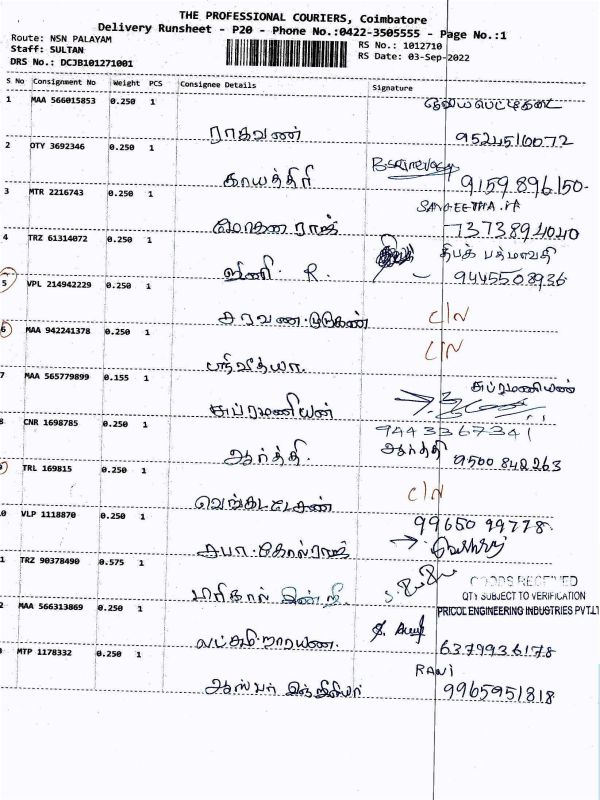 THE PROFESSIONAL COURIERS, Coimbatore
Delivery Runsheet - P20 - Phone No.:0422-3505555 - Page No.:1
Route: NSN PALAYAM
RS No.: 1012710
Staff: SULTAN
RS Date: 03-Sep-2022
DRS No.: DCJB101271001
S No Consignment No Weight PCS Consignee Details Signature
1 MAA 566015853 0.250 1
ராகவண் 9524510072
2 QTY 3692346 0.250 1
காயத்திரி 9159 896150-
3 MTR 2216743 0.250 1 SANGEETHA
மோகன ராஜ் 7373894040
4 TRZ 61314072 0.250 1 தீபக் பத்மாவதி
ஜினி. R. 9445508936
5 VPL 214942229 0.250 1
சரவண முருகண் C/N
6 MAA 942241378 0.250 1 C/N
ஸ்ரீவித்யா
7 MAA 565779899 0.155 1 சுப்ரமணியண்
சுப்ரமணியன்
8 CNR 1698785 0.250 1 9443367341
ஆர்த்தி. ஆர்த்தி 9500 842263
9 TRL 169815 0.250 1
வெங்கடேசண் C/N
0 VLP 1118870 0.250 1 99650 99778
1 TRZ 90378490 0.575 1
GOODS RECEIVED
QTY SUBJECT TO VERIFICATION
2 MAA 566313869 0.250 1 PRICOL ENGINEERING INDUSTRIES PVT.LT
லட்சுமி நாராயண. 6379936178
3 MTP 1178332 0.250 1 RANI
9965951818